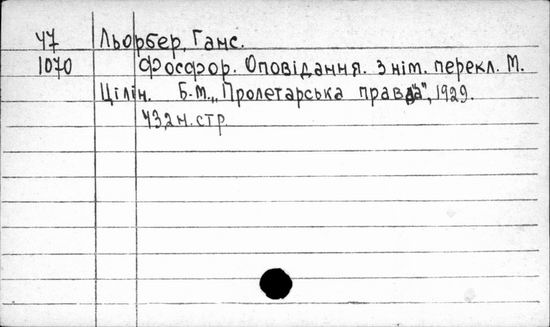 47 Льорбер, Ганс.
1070 Фосфор. Оповідання. З нім. перекл. М.
Цілін. Б.М. „Пролетарська правда", 1929.
43,2 н. стр.